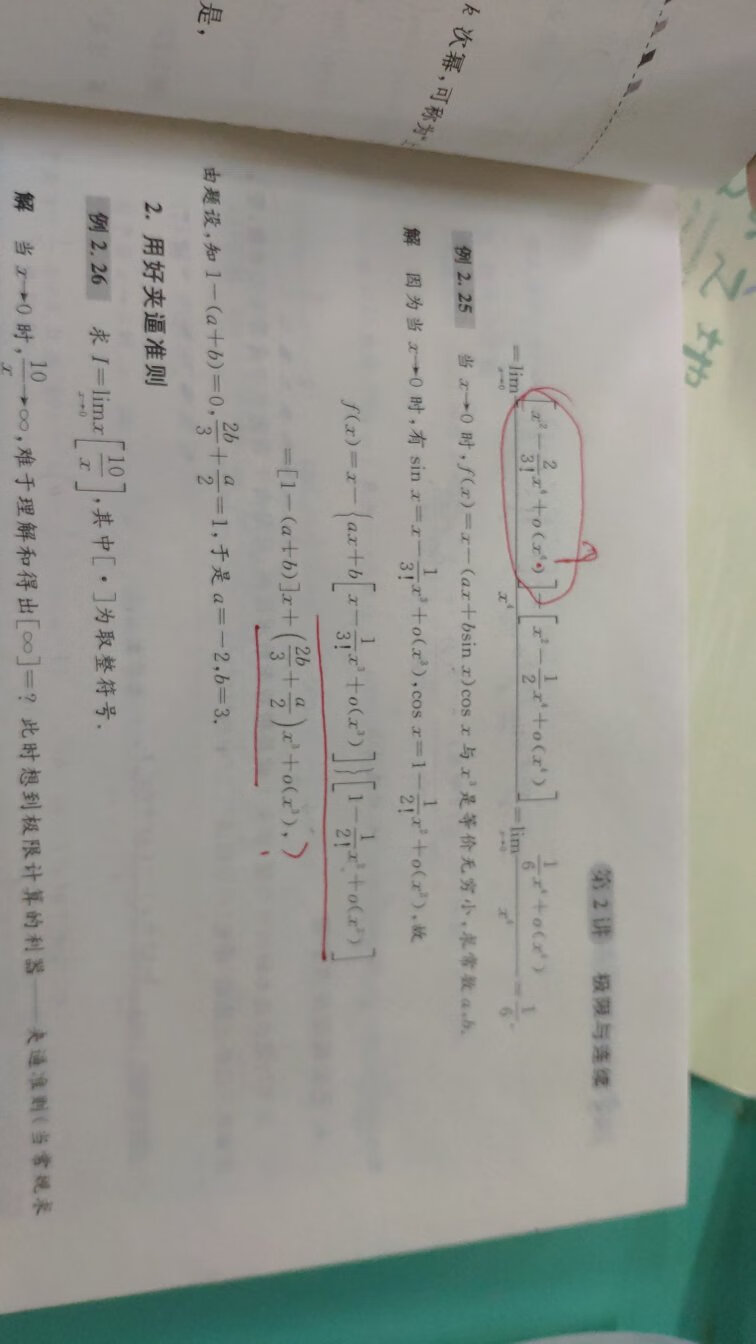 次幂,可称为
是,
第2讲 极限与连续
=lim_{x→0} \frac{[x²-\frac{2}{3!}x⁴+o(x⁴)]-[x²-\frac{1}{2}x⁴+o(x⁴)]}{x⁴}=lim_{x→0} \frac{\frac{1}{6}x⁴+o(x⁴)}{x⁴}=\frac{1}{6}.
例2.25 当x→0时,f(x)=x-(ax+bsin x)cos x与x³是等价无穷小,求常数a,b.
解 因为当x→0时,有sin x=x-\frac{1}{3!}x³+o(x³),cos x=1-\frac{1}{2!}x²+o(x²),故
f(x)=x-{ax+b[x-\frac{1}{3!}x³+o(x³)]}[1-\frac{1}{2!}x²+o(x²)]
=[1-(a+b)]x+(\frac{2b}{3}+\frac{a}{2})x³+o(x³),
由题设,知1-(a+b)=0,\frac{2b}{3}+\frac{a}{2}=1,于是a=-2,b=3.
2. 用好夹逼准则
例2.26 求I=lim_{x→0} x[\frac{10}{x}],其中[·]为取整符号.
解 当x→0时,\frac{10}{x}→∞,难于理解和得出[∞]=?此时想到极限计算的利器——夹逼准则(当常规求